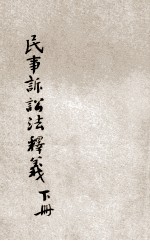 民事訴訟法釋義下册